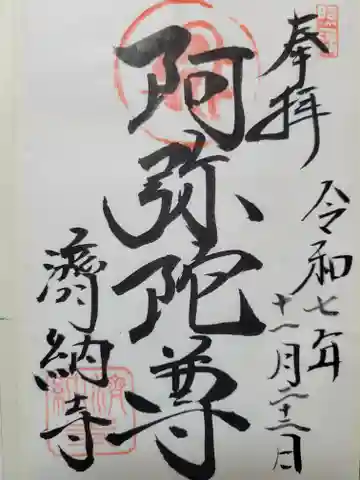 奉拝
令和七年
十一月二十三日
阿弥陀尊
濟納寺